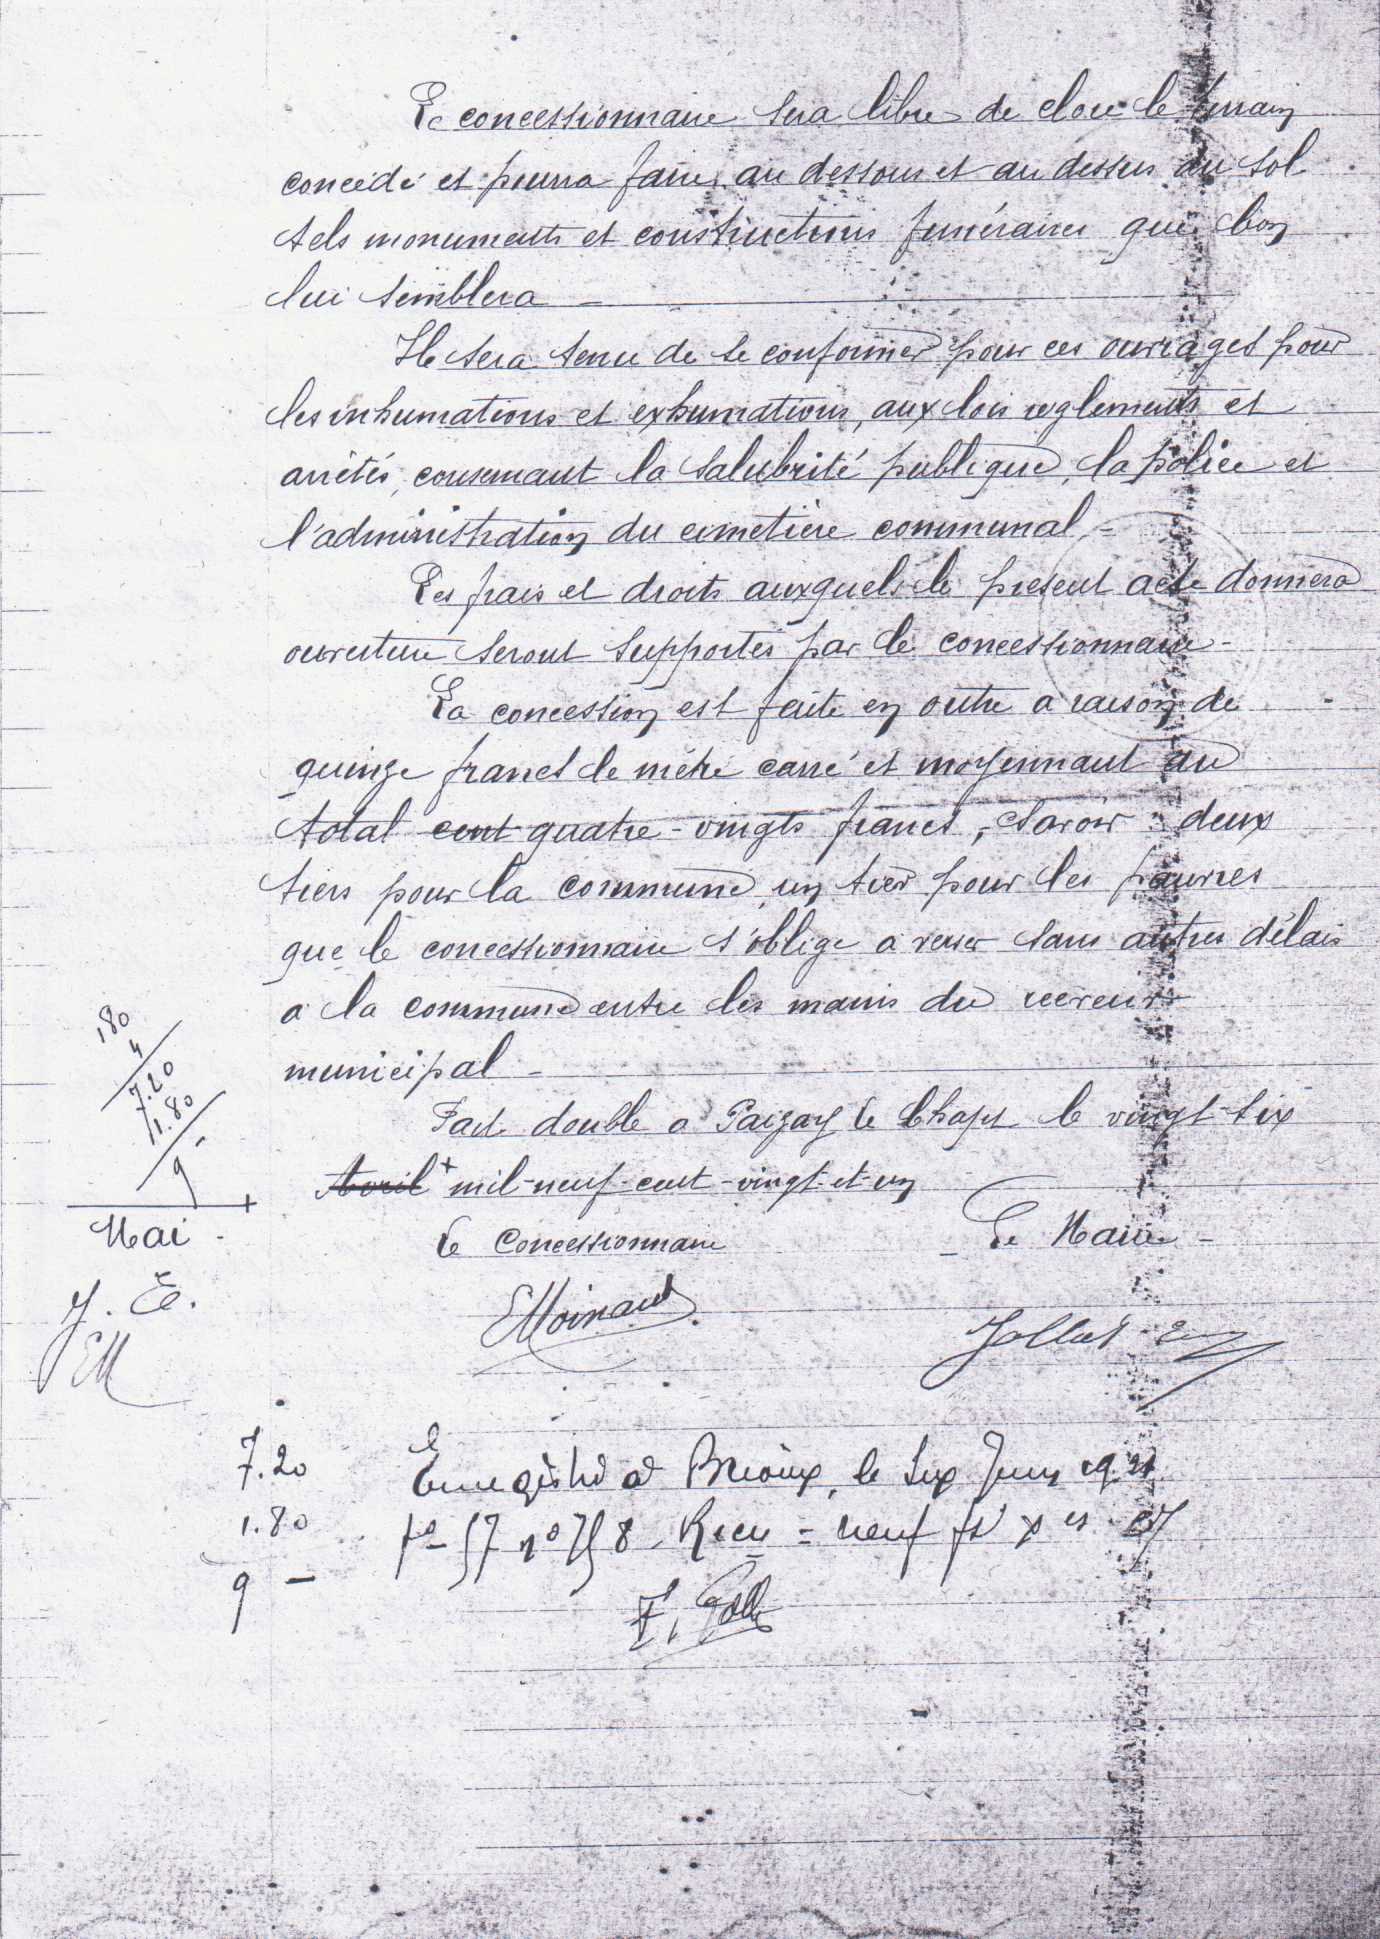 Le concessionnaire sera libre de clore le terrain
concédé et pourra faire, au dessous et au dessus du sol
tels monuments et constructions funéraires que bon
lui semblera -
Il sera tenu de se conformer pour ces ouvrages pour
les inhumations et exhumations, aux lois reglements et
arrêtés, concernant la salubrité publique, la police et
l'administration du cimetière communal -
Les frais et droits auxquels le present acte donnera
ouverture seront supportés par le concessionnaire -
La concession est faite en outre a raison de
quinze francs le mètre carré et moyennant au
total cent quatre-vingts francs, savoir deux
tiers pour la commune un tier pour les pauvres
que le concessionnaire s'oblige a verser sans autres délais
a la commune entre les mains du receveur
municipal -
180
4
7.20
1.80
9 -
Fait double a Paizay le Chapt le vingt-six
Avril + mil-neuf-cent-vingt-et-un
+
Mai -
Le Concessionnaire
Le Maire -
J. E.
EM
EMoinard
7.20 Enregistré à Brioux, le six Juin 1921
1.80 fo 57 no 758 - Reçu = neuf fs
9 -